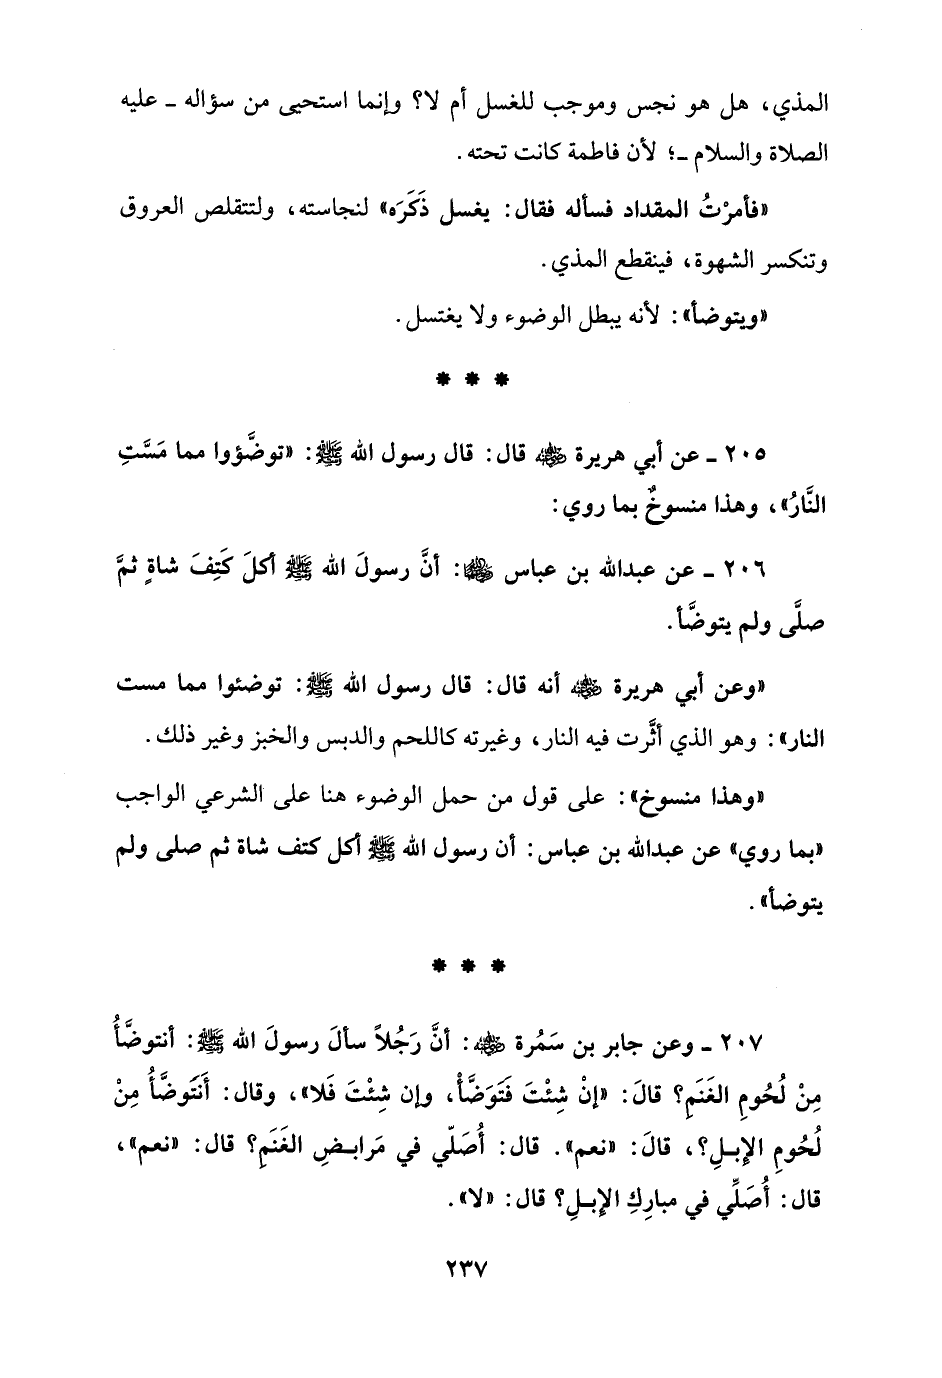 المذي، هل هو نجس وموجب للغسل أم لا؟ وإنما استحيى من سؤاله ـ عليه
الصلاة والسلام ـ؛ لأن فاطمة كانت تحته.
«فأمرْتُ المقداد فسأله فقال: يغسل ذَكَرَه» لنجاسته، ولتتقلص العروق
وتنكسر الشهوة، فينقطع المذي.
«ويتوضأ»: لأنه يبطل الوضوء ولا يغتسل.
* * *
٢٠٥ ـ عن أبي هريرة رضي الله عنه قال: قال رسول الله ﷺ: «توضَّؤوا مما مَسَّتِ
النَّارُ»، وهذا منسوخٌ بما روي:
٢٠٦ ـ عن عبدالله بن عباس رضي الله عنهما: أنَّ رسولَ الله ﷺ أكلَ كَتِفَ شاةٍ ثمَّ
صلَّى ولم يتوضَّأ.
«وعن أبي هريرة رضي الله عنه أنه قال: قال رسول الله ﷺ: توضئوا مما مست
النار»: وهو الذي أثَّرت فيه النار، وغيرته كاللحم والدبس والخبز وغير ذلك.
«وهذا منسوخ»: على قول من حمل الوضوء هنا على الشرعي الواجب
«بما روي» عن عبدالله بن عباس: أن رسول الله ﷺ أكل كتف شاة ثم صلى ولم
يتوضأ».
* * *
٢٠٧ ـ وعن جابر بن سَمُرة رضي الله عنه: أنَّ رَجُلاً سألَ رسولَ الله ﷺ: أنتوضَّأُ
مِنْ لُحُومِ الغَنَمِ؟ قالَ: «إنْ شِئْتَ فَتَوَضَّأْ، وإن شِئْتَ فَلا»، وقال: أَنَتَوضَّأُ مِنْ
لُحُومِ الإبـلِ؟، قالَ: «نعم». قال: أُصَلّي في مَرابـضِ الغَنَمِ؟ قال: «نعم»،
قال: أُصَلِّي في مبارِكِ الإبـلِ؟ قال: «لا».
٢٣٧